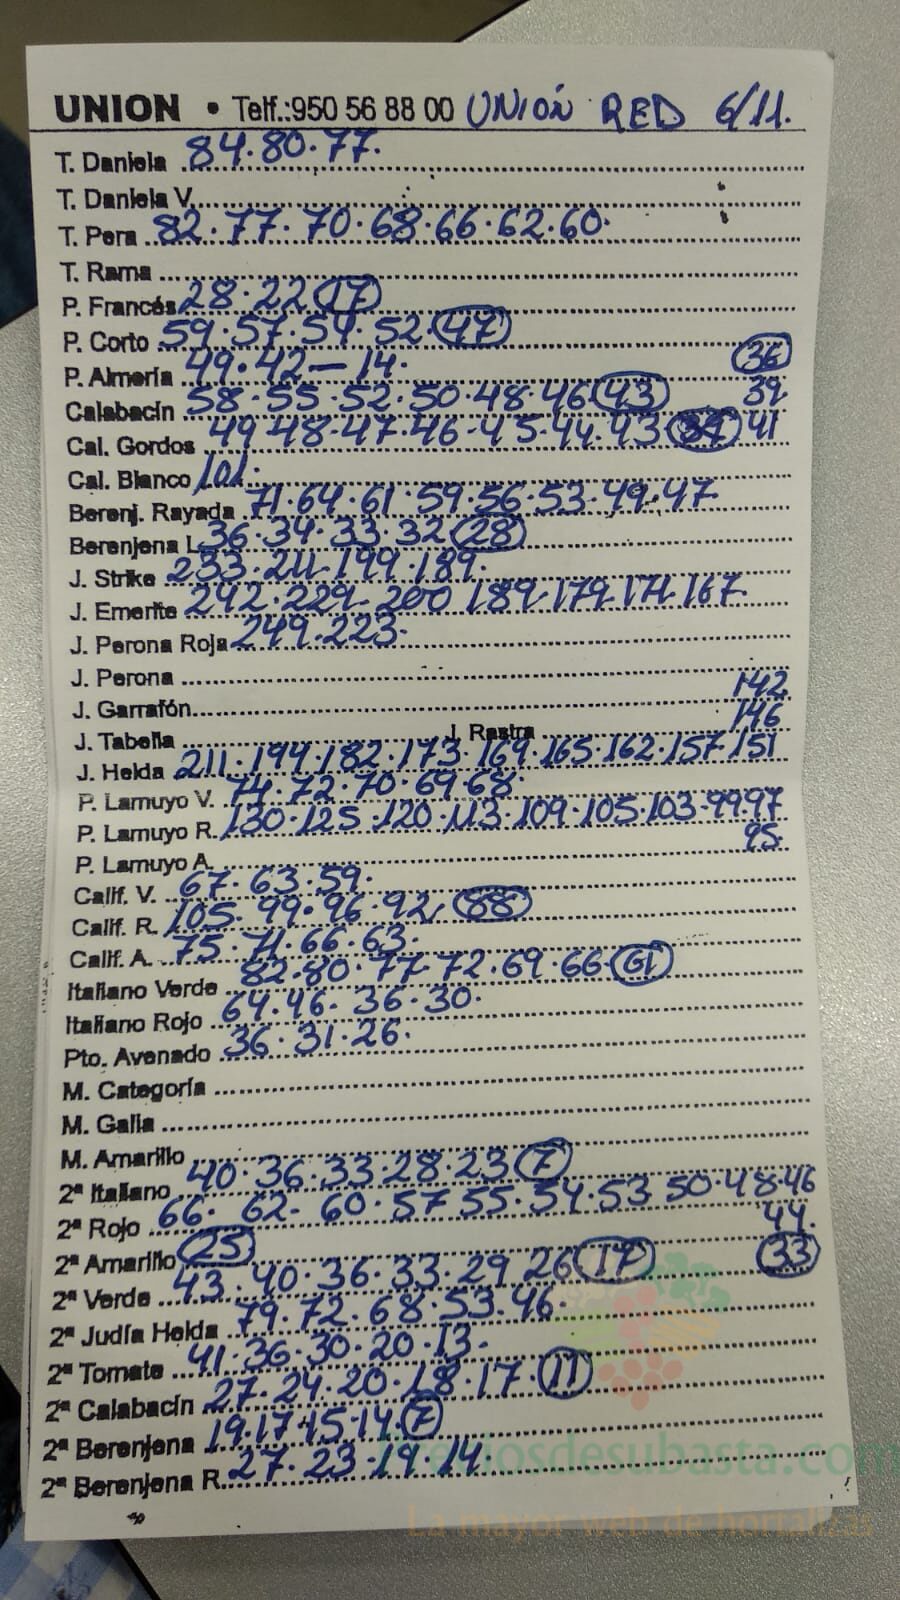 UNION • Telf.:950 56 88 00 UNIÓN RED 6/11.
T. Daniela 84.80.77.
T. Daniela V.
T. Pera 82.77.70.68.66.62.60.
T. Rama
P. Francés 28.22 17
P. Corto 59.57.54.52.47
P. Almería 49.42—14. 36
Calabacín 58.55.52.50.48.46 43 39
Cal. Gordos 49 48.47.46.45.44.43 41
Cal. Blanco 101.
Berenj. Rayada 71.64.61.59.56.53.49.47
Berenjena L 36.34.33.32 28
J. Strike 233.211.199.189.
J. Emerite 242.229.200 189.179.171.167.
J. Perona Roja 249.223.
J. Perona
J. Garrafón 142
J. Tabella J. Rastra 146
J. Helda 211.194.182.173.169.165.162.157 151
P. Lamuyo V. 74.72.70.69.68.
P. Lamuyo R. 130.125.120.113.109.105.103.99.97
P. Lamuyo A. 95.
Calif. V. 67.63.59.
Calif. R. 105.99.96.92 88
Calif. A. 75.71.66.63.
Italiano Verde 82.80.77.72.69.66.61
Italiano Rojo 64.46.36.30.
Pto. Avenado 36.31.26.
M. Categoría
M. Galia
M. Amarillo
2ª Italiano 40.36.33.28.23 7
2ª Rojo 66.62.60.57 55.54.53 50.48.46
2ª Amarillo 25 44.
2ª Verde 43.40.36.33.29 26 17 33
2ª Judía Helda 79.72.68.53.46.
2ª Tomate 41.36.30.20.13.
2ª Calabacín 27.24.20.18.17.11
2ª Berenjena 19.17.15.14.7
2ª Berenjena R. 27.23.19.14
preciosdesubasta.com
La mayor web de hortalizas